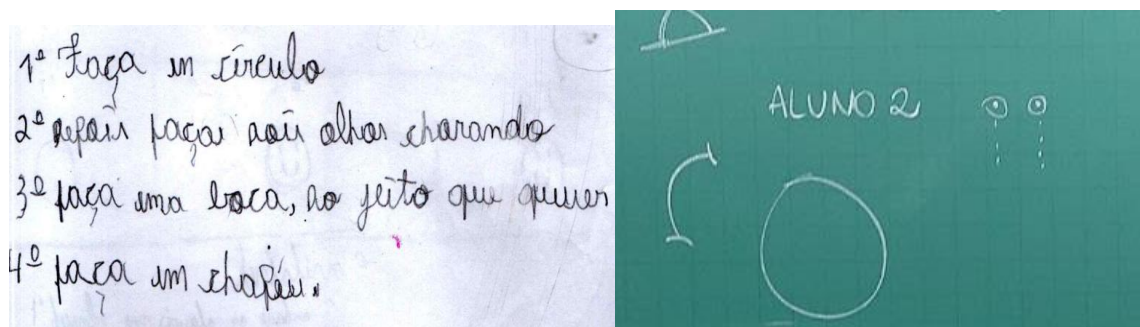 1º Faça um círculo
2º depois faça dois olhos chorando
3º faça uma boca, do jeito que quiser
4º faça um chapéu.
ALUNO 2